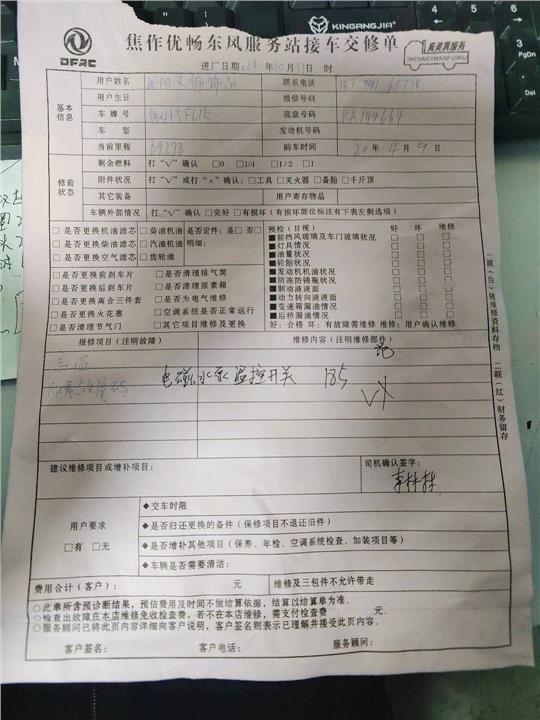 DFAC
焦作优畅东风服务站接车交修单
真美满服务
ZHENMEIMANFUWU
KINGANGJIA
进厂日期: 年10月31日 时
基本信息
用户姓名
联系电话
用户生日
微信号码
车牌号
底盘号码 RA149664
车型
发动机号码
当前里程 69278
购车时间 20年4月9日
修前状态
剩余燃料 打“√”确认 □0 □1/4 □1/2 □1
附件状况 打“√”或打“×”确认:□工具 □灭火器 □备胎 □千斤顶
其它装备 用户寄存物品
车辆外部情况 打“√”确认 □完好 □有损坏(有损坏部位标注右下表左侧选项)
□是否更换机油滤芯 □柴油机油 □是否定件:是□否□
□是否更换柴油滤芯 □汽油机油 明细:
□是否更换空气滤芯 □齿轮油
□是否更换前刹车片 □是否清理排气筒
□是否更换后刹车片 □是否清理尿素箱
□是否更换离合三件套 □是否为电气维修
□是否更换火花塞 □空调系统是否正常运行
□是否清理节气门 □其它项目维修及更换
预检(目视) 好 坏 维修
■前挡风玻璃及车门玻璃状况 □ □ □
■灯具情况 □ □ □
■油量状况 □ □ □
■轮胎状况 □ □ □
■发动机机油状况 □ □ □
■防冻防锈瓶状况 □ □ □
■制动液液面 □ □ □
■动力转向液液面 □ □ □
■变速箱漏油情况 □ □ □
■后桥漏油情况 □ □ □
好:合格 坏:有故障需维修 维修:用户确认维修
报修项目(注明故障) 维修内容(注明维修部件)
高温
电磁水泵温控开关 185
建议维修项目或增补项目:
司机确认签字:
用户要求
□有 □无
◆交车时限
◆是否归还更换的备件(保修项目不退还旧件)
◆是否增补其他项目(保养、年检、空调系统检查、加装项目等)
◆车辆是否需要清洁:
费用合计(客户): 元 维修及三包件不允许带走
○此单所含预诊断结果,预估费用及时间不做结算依据,结算以结算单为准。
○检查出故障在本店维修免收检查费,若不在本店维修,需支付检查费 元。
○服务顾问已将此页内容详细向客户说明,客户签名则表示已理解并接受此页内容。
客户签名: 客户电话: 服务顾问:
一联(白)随维修资料存档 二联(红)财务留存